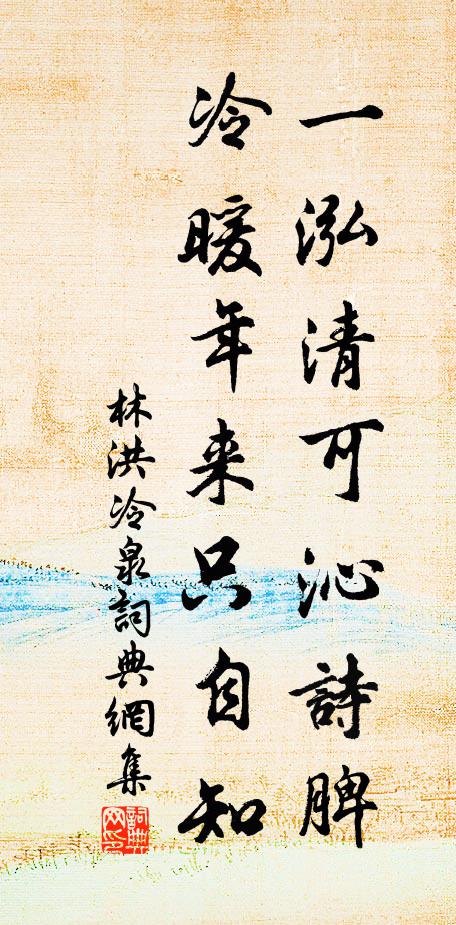 一泓清可沁詩脾
冷暖年来只自知
林洪冷泉詞典網集